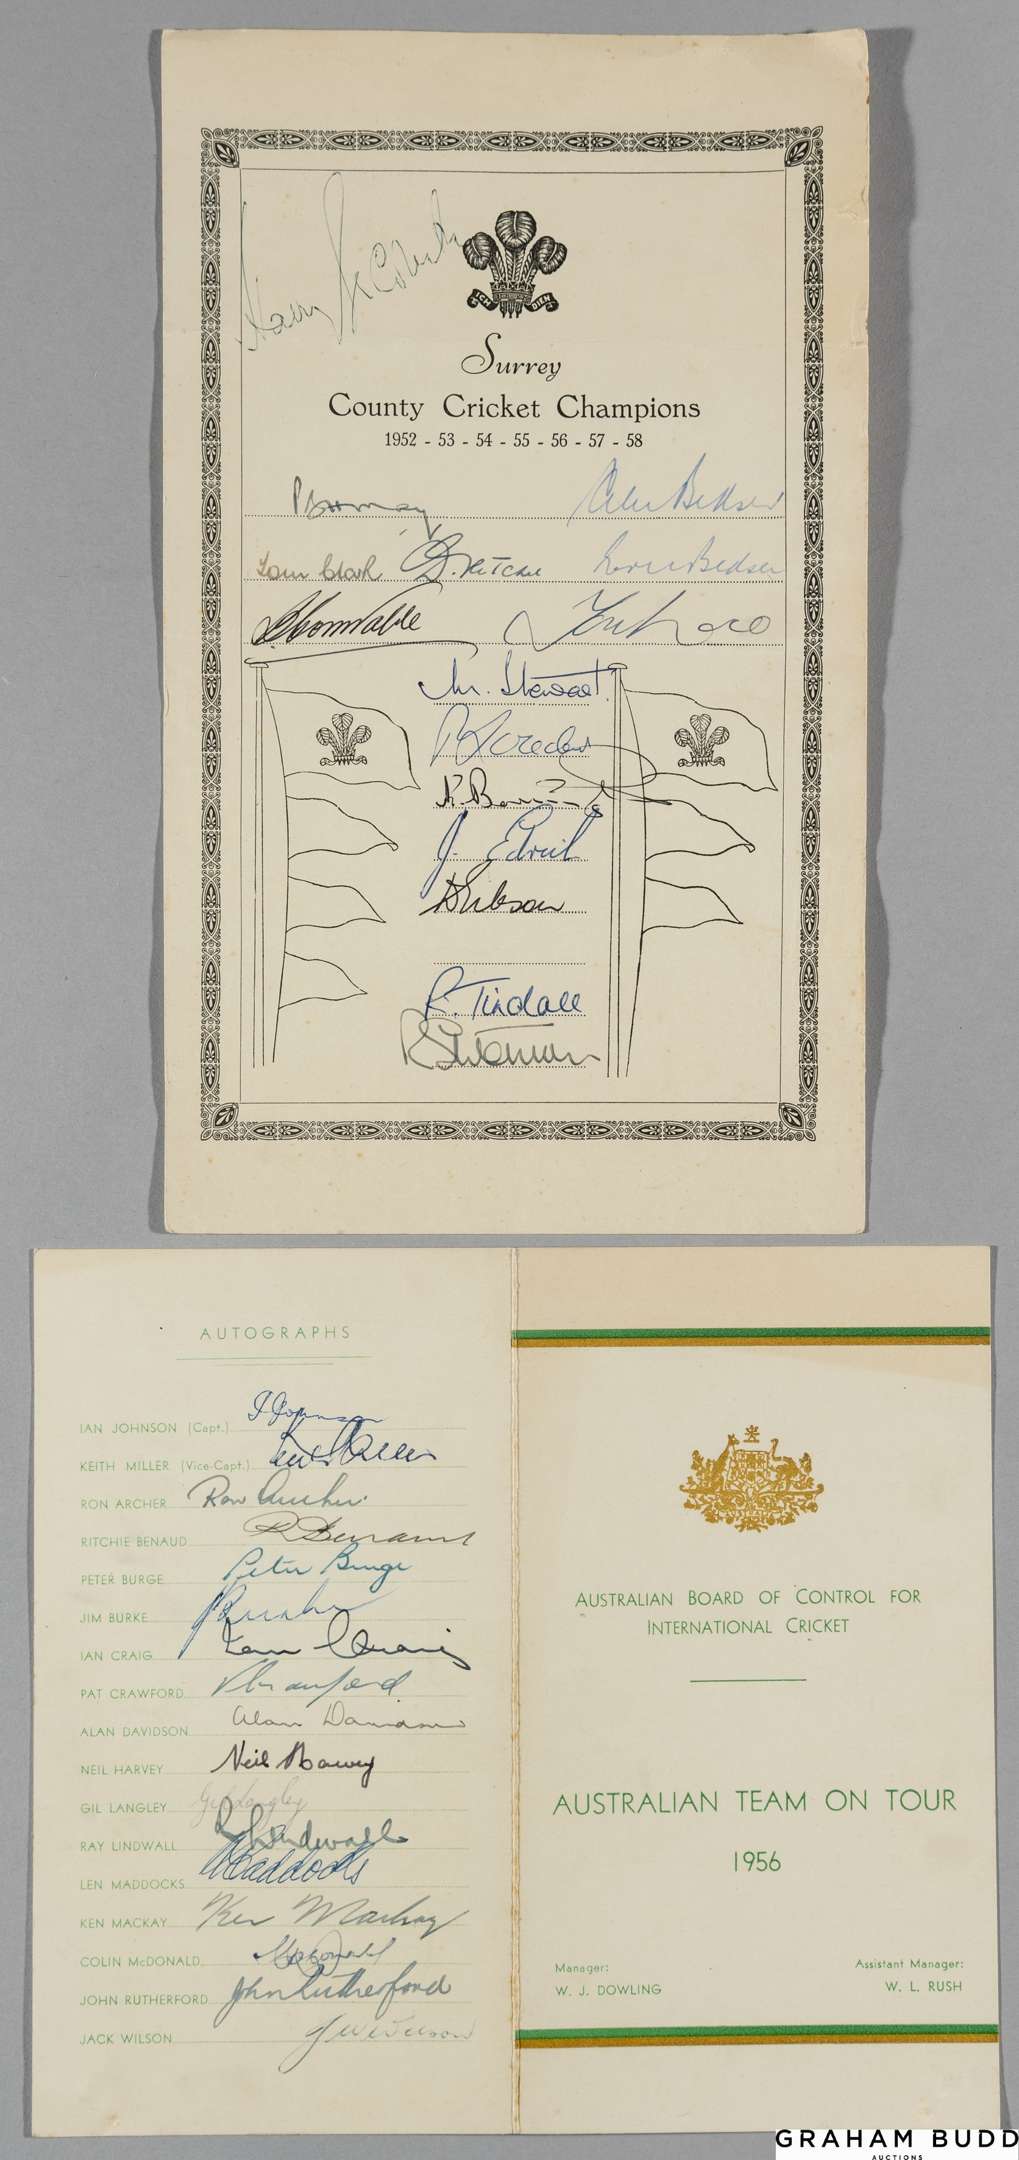 ICH DIEN
Surrey
County Cricket Champions
1952 - 53 - 54 - 55 - 56 - 57 - 58
P B H May Alec Bedser
Tom Clark Eric Bedser
B Constable
M. Stewart.
K. Barrington
J. Edrich
D Gibson
R. Tindall
AUTOGRAPHS
IAN JOHNSON (Capt.) I Johnson
KEITH MILLER (Vice-Capt.) Keith Miller
RON ARCHER Ron Archer
RITCHIE BENAUD R Benaud
PETER BURGE Peter Burge
JIM BURKE J Burke
IAN CRAIG Ian Craig
PAT CRAWFORD P Crawford
ALAN DAVIDSON Alan Davidson
NEIL HARVEY Neil Harvey
GIL LANGLEY Gil Langley
RAY LINDWALL R Lindwall
LEN MADDOCKS L Maddocks
KEN MACKAY Ken Mackay
COLIN McDONALD McDonald
JOHN RUTHERFORD John Rutherford
JACK WILSON J W Wilson
AUSTRALIAN BOARD OF CONTROL FOR
INTERNATIONAL CRICKET
AUSTRALIAN TEAM ON TOUR
1956
Manager:
W. J. DOWLING
Assistant Manager:
W. L. RUSH
GRAHAM BUDD
AUCTIONS